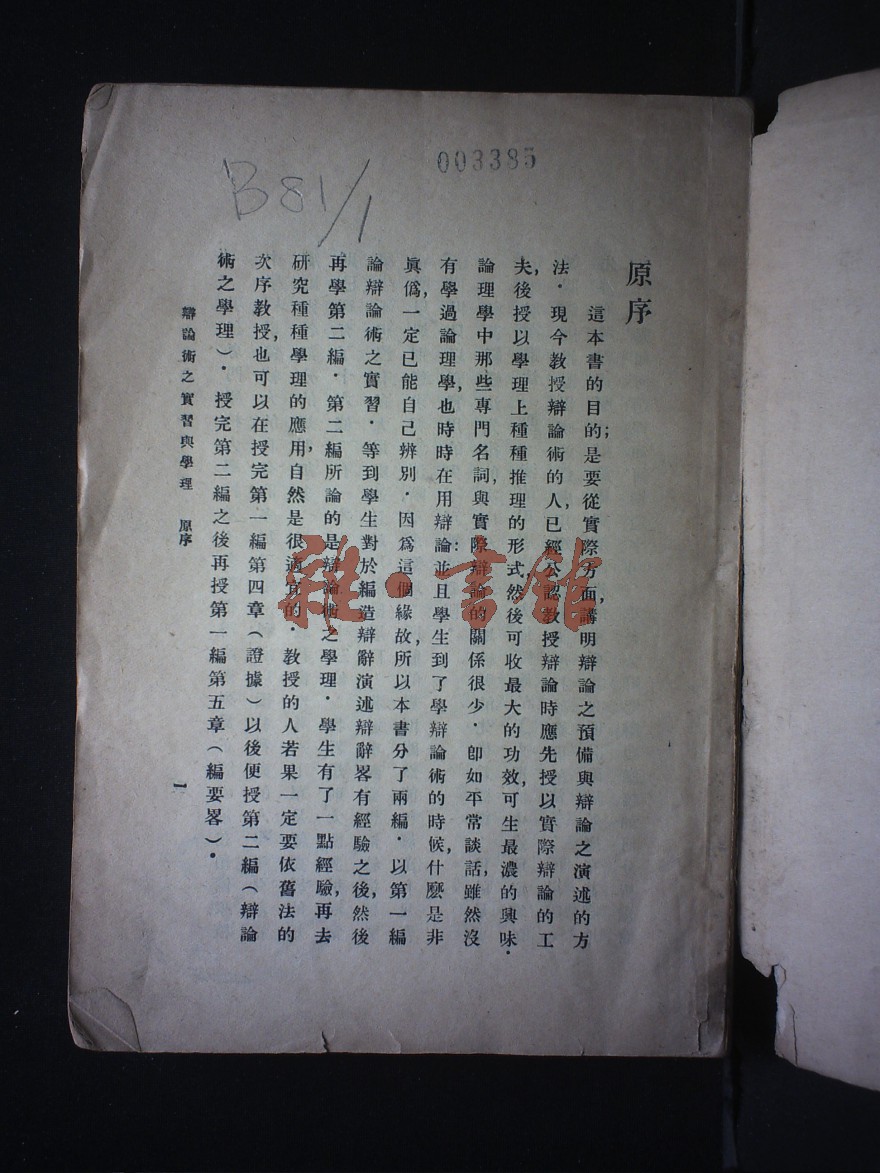 003385
B81/1
原序
這本書的目的;是要從實際方面,講明辯論之預備與辯論之演述的方
法.現今教授辯論術的人,已經公認教授辯論時應先授以實際辯論的工
夫,後授以學理上種種推理的形式,然後可收最大的功效,可生最濃的興味.
論理學中那些專門名詞,與實際辯論的關係很少.卽如平常談話,雖然沒
有學過論理學,也時時在用辯論:並且學生到了學辯論術的時候,什麼是非
眞僞,一定已能自己辨別.因爲這個緣故,所以本書分了兩編.以第一編
論辯論術之實習.等到學生對於編造辯辭演述辯辭畧有經驗之後,然後
再學第二編.第二編所論的是辯論術之學理.學生有了一點經驗,再去
研究種種學理的應用,自然是很適宜的.教授的人若果一定要依舊法的
次序教授,也可以在授完第一編第四章(證據)以後便授第二編(辯論
術之學理).授完第二編之後再授第一編第五章(編要畧).
辯論術之實習與學理 原序
一
雜·書館